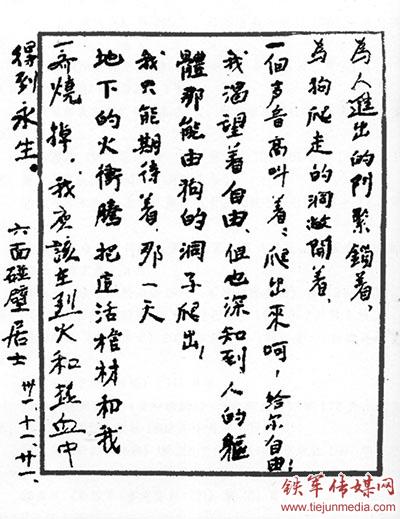 為人進出的门緊鎖着,
為狗爬走的洞敞開着,
一個声音高叫着:爬出來呵,给尔自由!
我渴望着自由,但也深知到人的軀
體那能由狗的洞子爬出!
我只能期待着,那一天
地下的火衝騰把這活棺材和我
一齊燒掉。我应該在烈火和热血中
得到永生。
六面碰壁居士
卅一.十一.廿一.
铁军传媒网
www.tiejunmedia.com